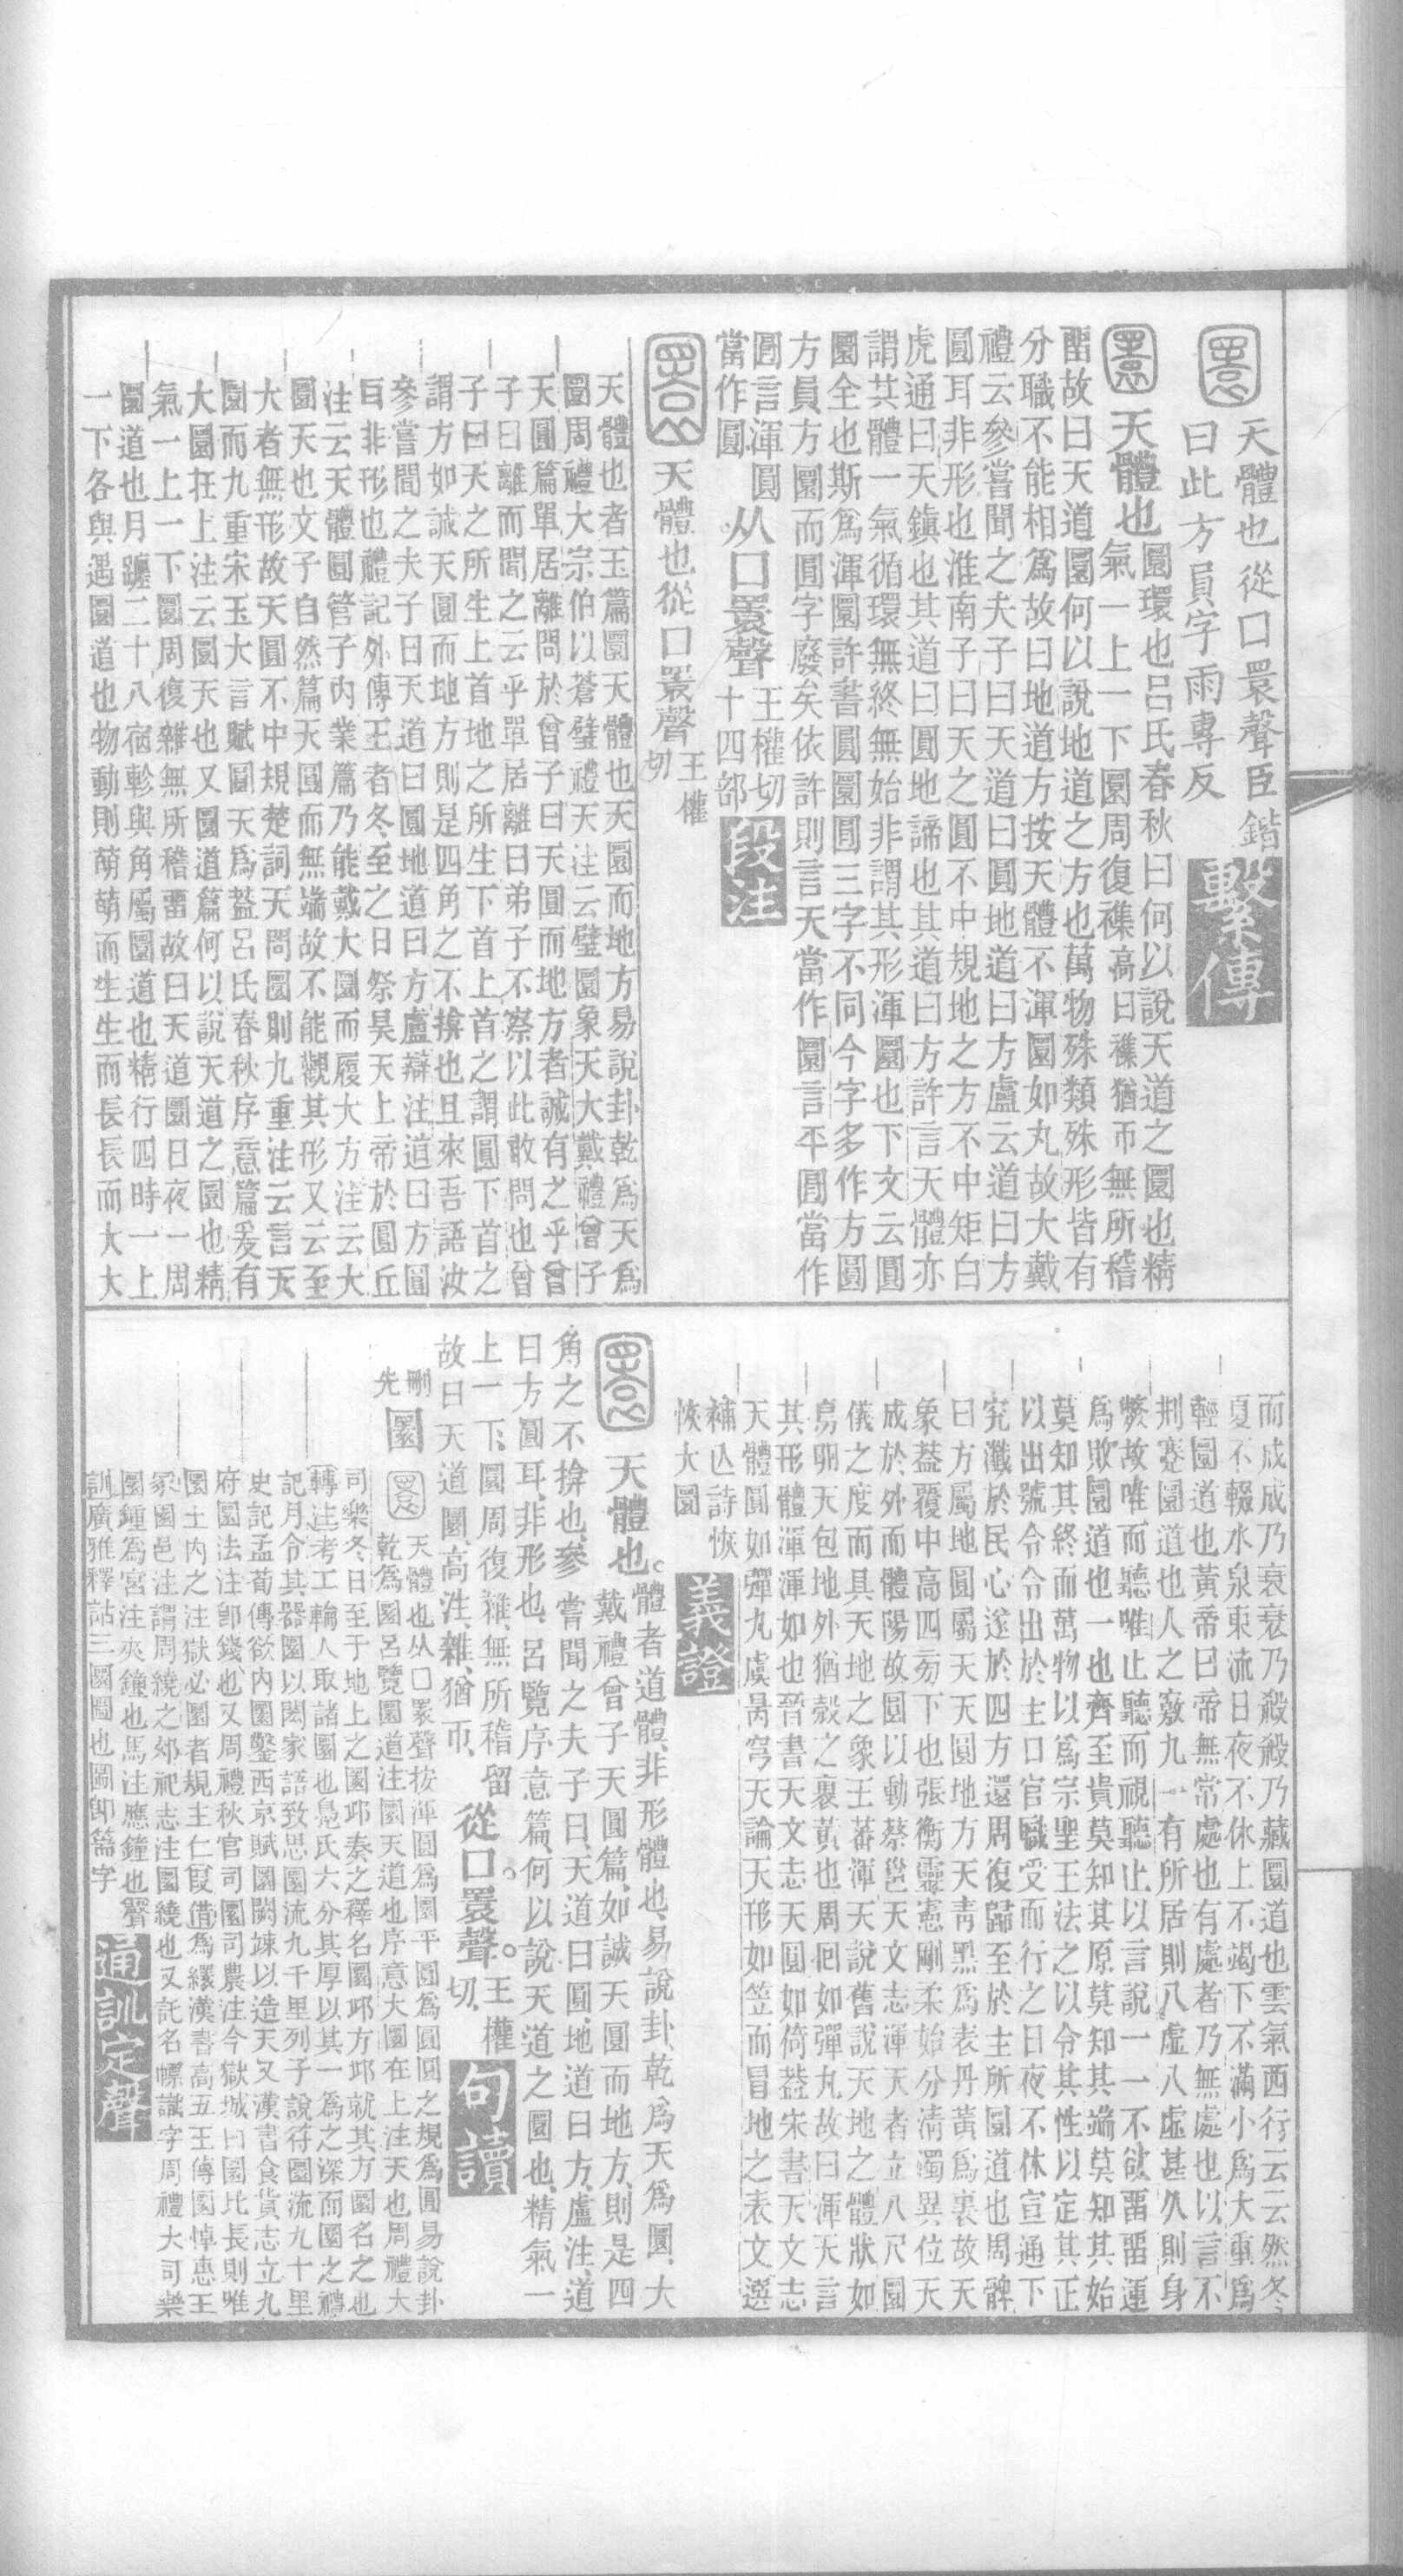 天體也從口瞏聲臣鍇
曰此方員字雨專反
繫傳
天體也
圜環也呂氏春秋曰何以說天道之圜也精
氣一上一下圜周復襍高曰襍猶帀無所稽
畱故曰天道圜何以說地道之方也萬物殊類殊形皆有
分職不能相爲故曰地道方按天體不渾圜如丸故大戴
禮云參嘗聞之夫子曰天道曰圓地道曰方盧云道曰方
圓耳非形也淮南子曰天之圓不中規地之方不中矩白
虎通曰天鎮也其道曰圓地諦也其道曰方許言天體亦
謂其體一氣循環無終無始非謂其形渾圜也下文云圓
圜全也斯爲渾圜許書圓圜圓三字不同今字多作方圓
方員方圜而圓字廢矣依許則言天當作圜言平圓當作
圓言渾圓
當作圓
从口瞏聲
王權切
十四部
段注
天體也從口瞏聲
王權
切
天體也者玉篇圜天體也天圜而地方易說卦乾爲天爲
圜周禮大宗伯以蒼璧禮天注云璧圜象天大戴禮曾子
天圓篇單居離問於曾子曰天圓而地方者誠有之乎曾
子曰離而聞之云乎單居離曰弟子不察以此敢問也曾
子曰天之所生上首地之所生下首上首之謂圓下首之
謂方如誠天圓而地方則是四角之不揜也且來吾語汝
參嘗聞之夫子曰天道曰圓地道曰方盧辯注道曰方圓
耳非形也禮記外傳王者冬至之日祭昊天上帝於圓丘
注云天體圓管子內業篇乃能戴大圜而履大方注云大
圜天也文子自然篇天圓而無端故不能觀其形又云至
大者無形故天圓不中規楚詞天問圜則九重注云言天
圜而九重宋玉大言賦圓天爲蓋呂氏春秋序意篇爰有
大圜在上注云圜天也又圜道篇何以說天道之圜也精
氣一上一下圜周復雜無所稽畱故曰天道圜日夜一周
圜道也月躔二十八宿軫與角屬圜道也精行四時一上
一下各與遇圜道也物動則萌萌而生生而長長而大大
而成成乃衰衰乃殺殺乃藏圜道也雲氣西行云云然冬
夏不輟水泉東流日夜不休上不竭下不滿小爲大重爲
輕圜道也黃帝曰帝無常處也有處者乃無處也以言不
刑蹇圜道也人之竅九一有所居則八虛八虛甚久則身
斃故唯而聽唯止聽而視聽止以言說一一不欲畱畱運
爲敗圜道也一也齊至貴莫知其原莫知其端莫知其始
莫知其終而萬物以爲宗聖王法之以令其性以定其正
以出號令令出於主口官職受而行之日夜不休宣通下
究瀸於民心遂於四方還周復歸至於主所圜道也周髀
曰方屬地圓屬天天圓地方天青黑爲表丹黃爲裏故天
象蓋覆中高四旁下也張衡靈憲剛柔始分淸濁異位天
成於外而體陽故圓以動蔡邕天文志渾天者立八尺圜
儀之度而具天地之象王蕃渾天說舊說天地之體狀如
鳥卵天包地外猶殼之裹黃也周囘如彈丸故曰渾天言
其形體渾渾如也晉書天文志天圓如倚葢宋書天文志
天體圓如彈丸虞昺穹天論天形如笠而冒地之表文選
補亾詩恢
恢大圜
義證
天體也。
體者道體、非形體也、易說卦、乾爲天爲圜、大
戴禮曾子天圓篇、如誠天圓而地方、則是四
角之不揜也、參嘗聞之夫子曰、天道曰圓、地道曰方、盧注、道
曰方圓耳、非形也、呂覽序意篇、何以說天道之圜也、精氣一
上一下、圜周復雜、無所稽留
故曰天道圜、高注、雜、猶帀、
從口。瞏聲。
王權
切、
句讀
刪
先
圜
天體也从口瞏聲按渾圓爲圜平圓爲圓圓之規爲圓易說卦
乾爲圜呂覽圜道注圜天道也序意大圜在上注天也周禮大
司樂冬日至于地上之圜邱奏之釋名圜邱方邱就其方圜名之也
轉注考工輪人取諸圜也鳧氏六分其厚以其一爲之深而圜之禮
記月令其器圜以閎家語致思圜流九千里列子說符圜流九十里
史記孟荀傳欲內圜鑿西京賦圜闕竦以造天又漢書食貨志立九
府圜法注卽錢也又周禮秋官司圜司農注今獄城曰圜比長則唯
圜土內之注獄必圜者規主仁叚借爲繯漢書高五王傳圜悼惠王
冢園邑注謂周繞之郊祀志注圜繞也又託名幖識字周禮大司樂
圜鍾爲宮注夾鐘也馬注應鐘也聲
訓廣雅釋詁三圜圓也圓卽篇字
通訓定聲